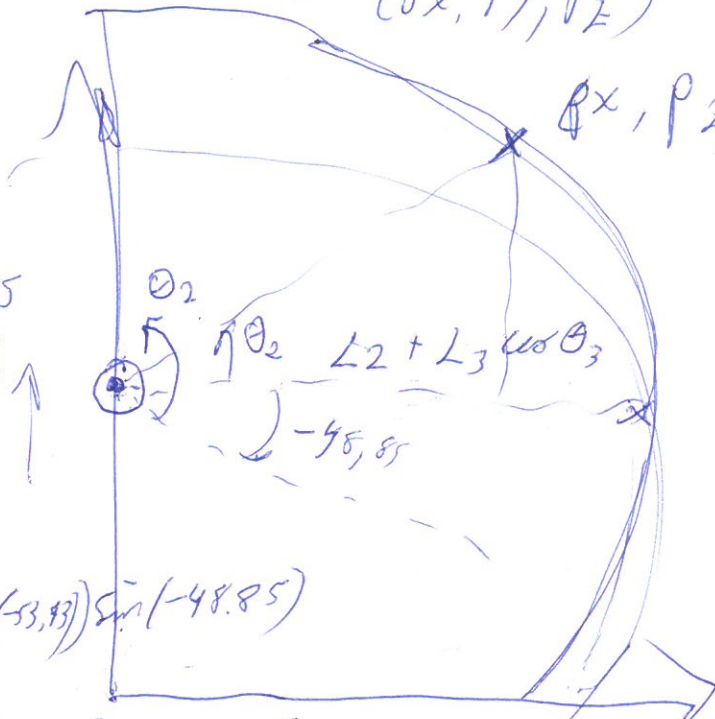 (Px, Py, Pz)
Px, Pz
5
θ2
θ2 L2 + L3 cos θ3
-48,85
(-53,93)) Sin(-48.85)